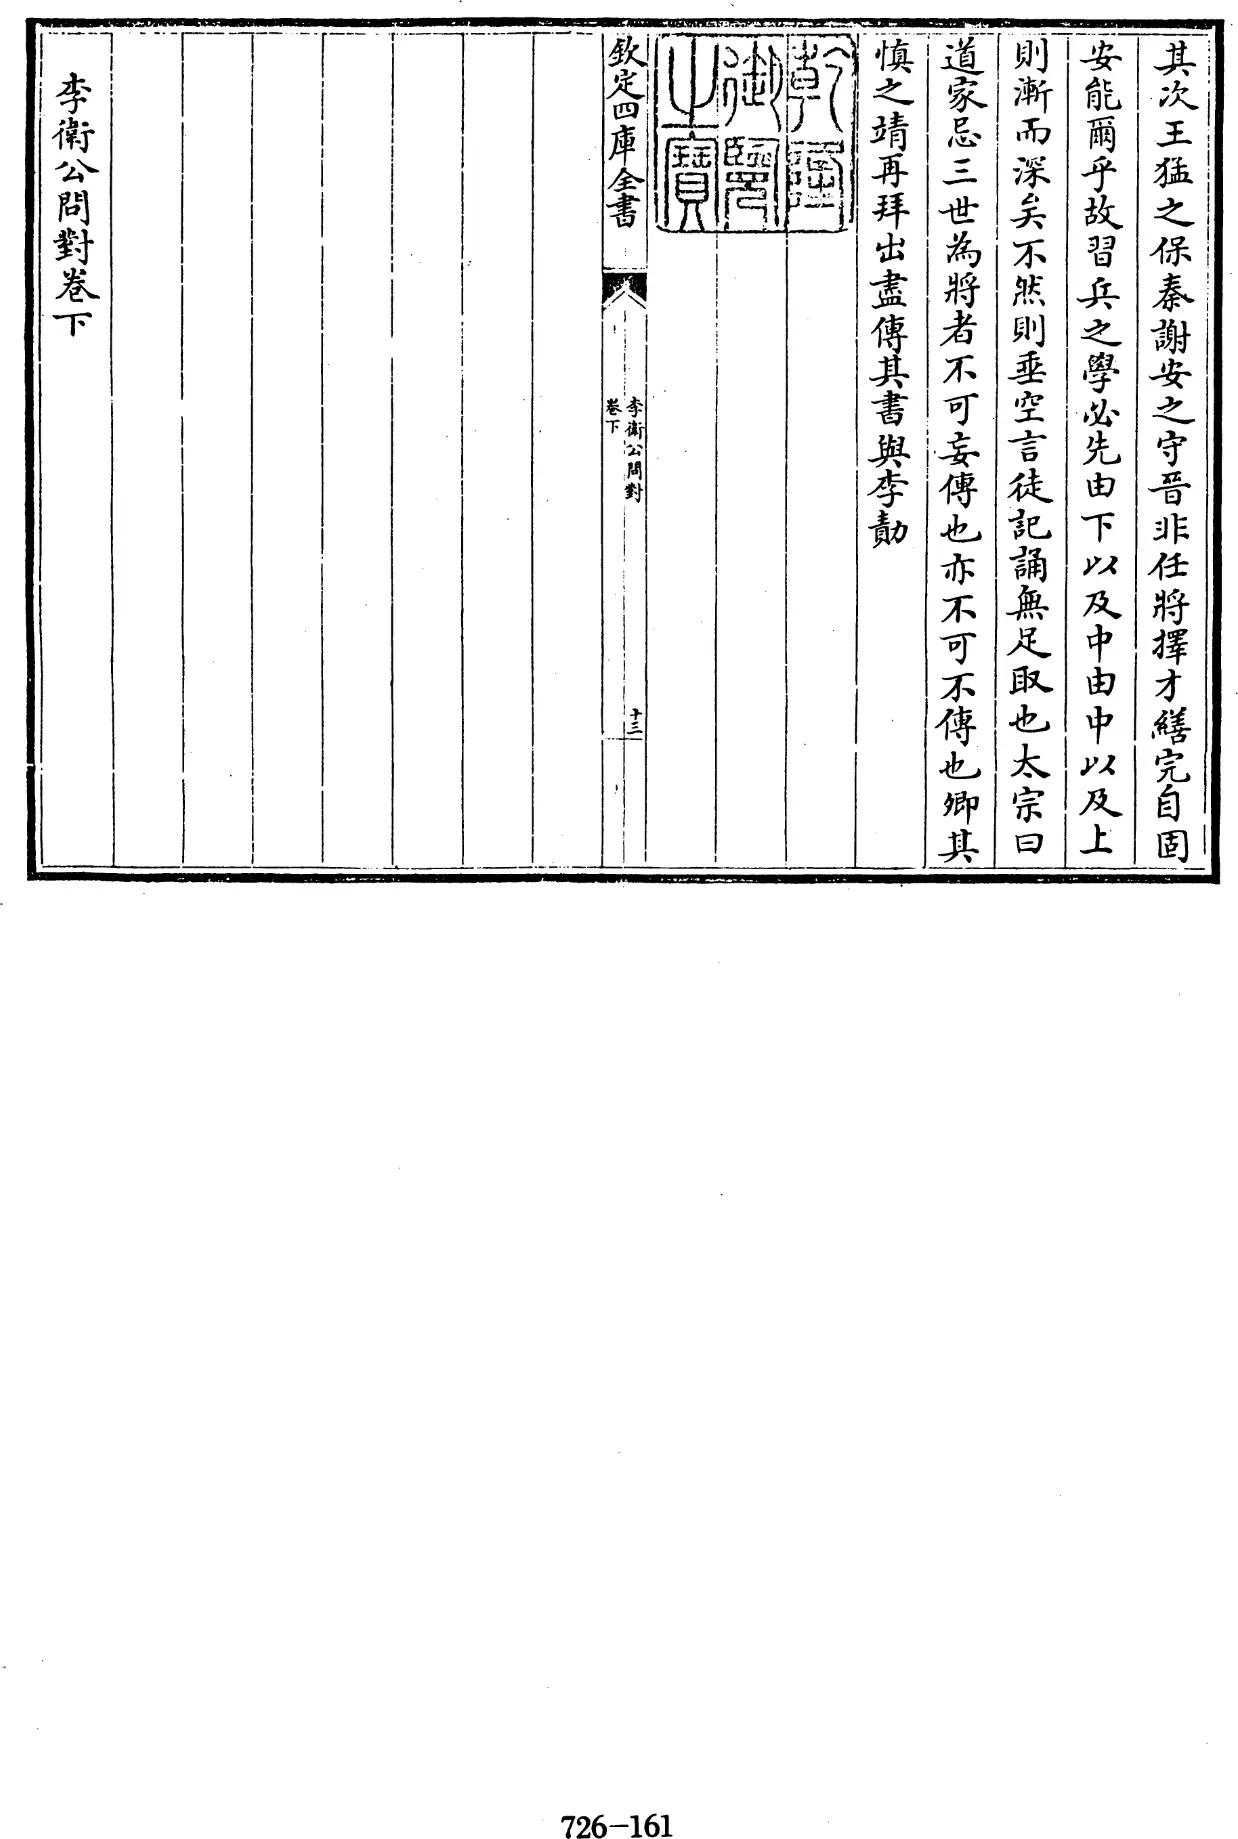 其次王猛之保秦謝安之守晉非任將擇才繕完自固
安能爾乎故習兵之學必先由下以及中由中以及上
則漸而深矣不然則垂空言徒記誦無足取也太宗曰
道家忌三世為將者不可妄傳也亦不可不傳也卿其
慎之靖再拜出盡傳其書與李勣
乾隆
御覽
之寶
欽定四庫全書
李衛公問對
卷下
十三
李衛公問對卷下
726-161